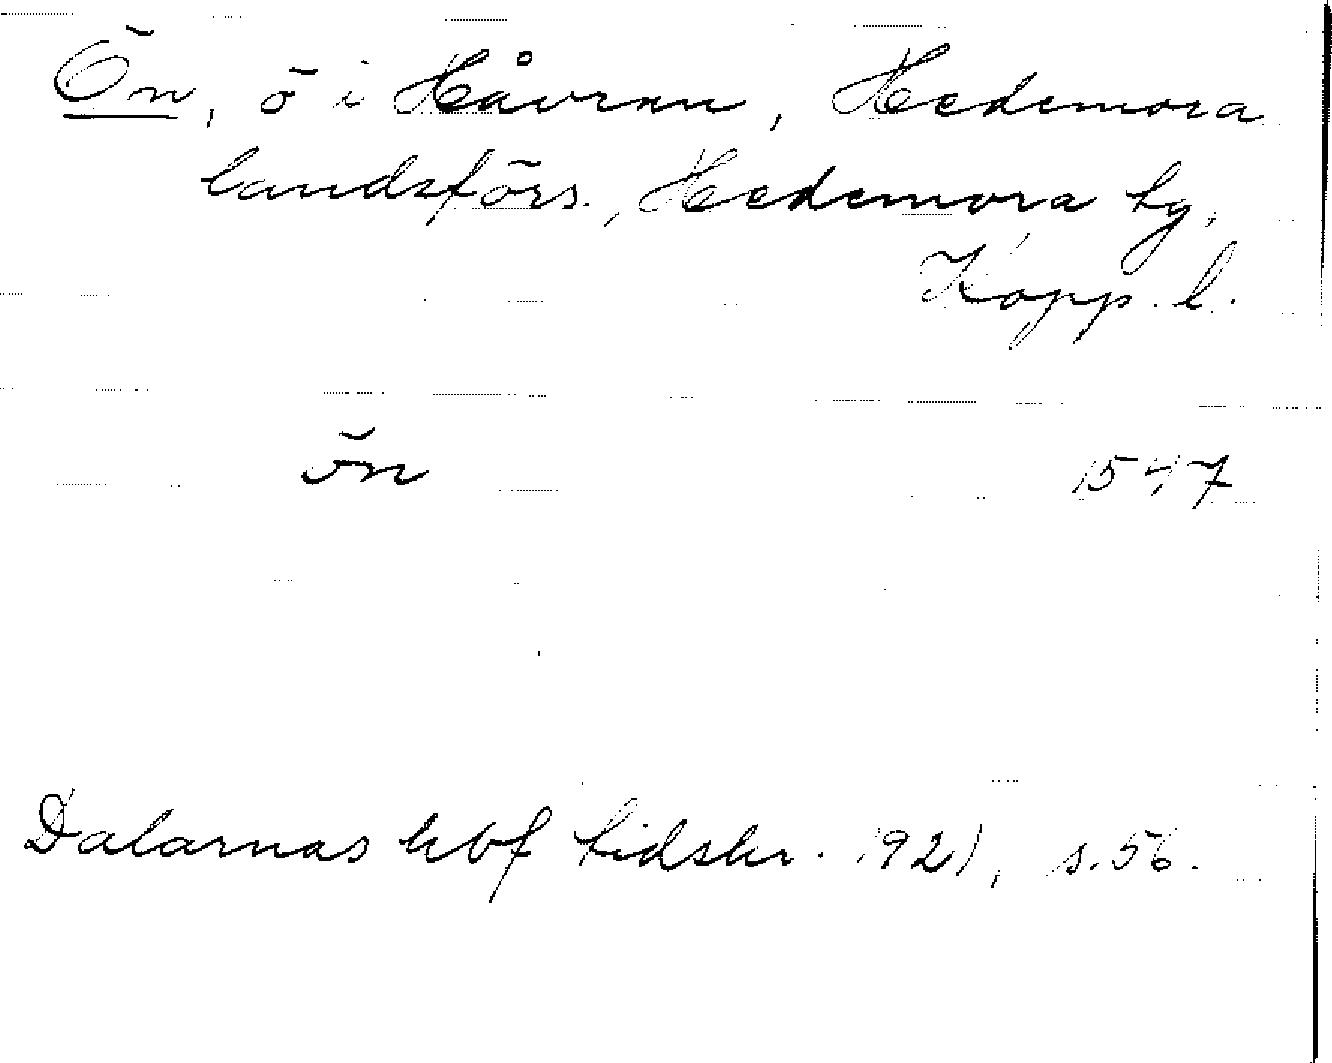 Ön, ö i Håvran, Hedemora
landsförs., Hedemora tg,
Kopp. l.
ön 1547
Dalarnas hbf tidskr. 1921, s. 56.